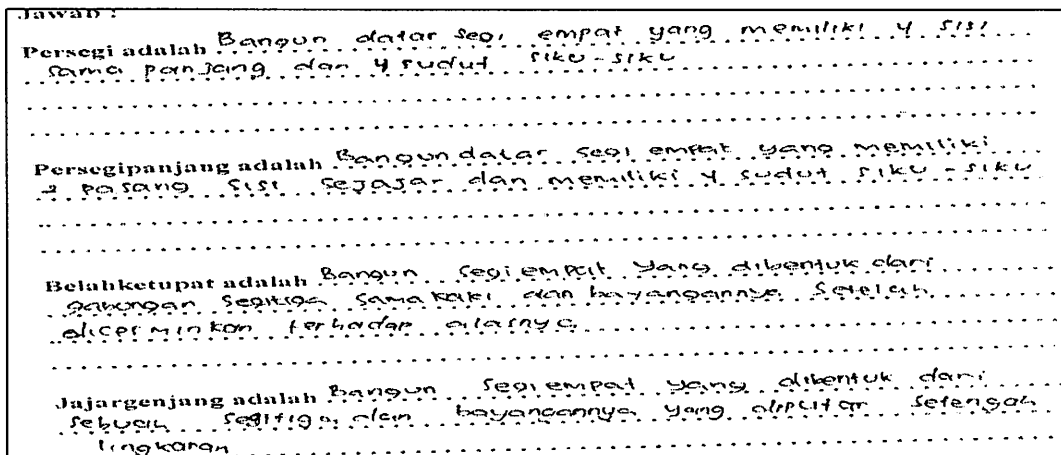 Jawab :
Persegi adalah Bangun datar segi empat yang memiliki 4 sisi
sama panjang dan 4 sudut siku-siku
Persegipanjang adalah Bangun datar segi empat yang memiliki
2 pasang sisi sejajar dan memiliki 4 sudut siku-siku
Belahketupat adalah Bangun segi empat yang dibentuk dari
gabungan segitiga sama kaki dan bayangannya setelah
dicerminkan terhadap alasnya
Jajargenjang adalah Bangun segi empat yang dibentuk dari
sebuah segitiga dan bayangannya yang diputar setengah
lingkaran